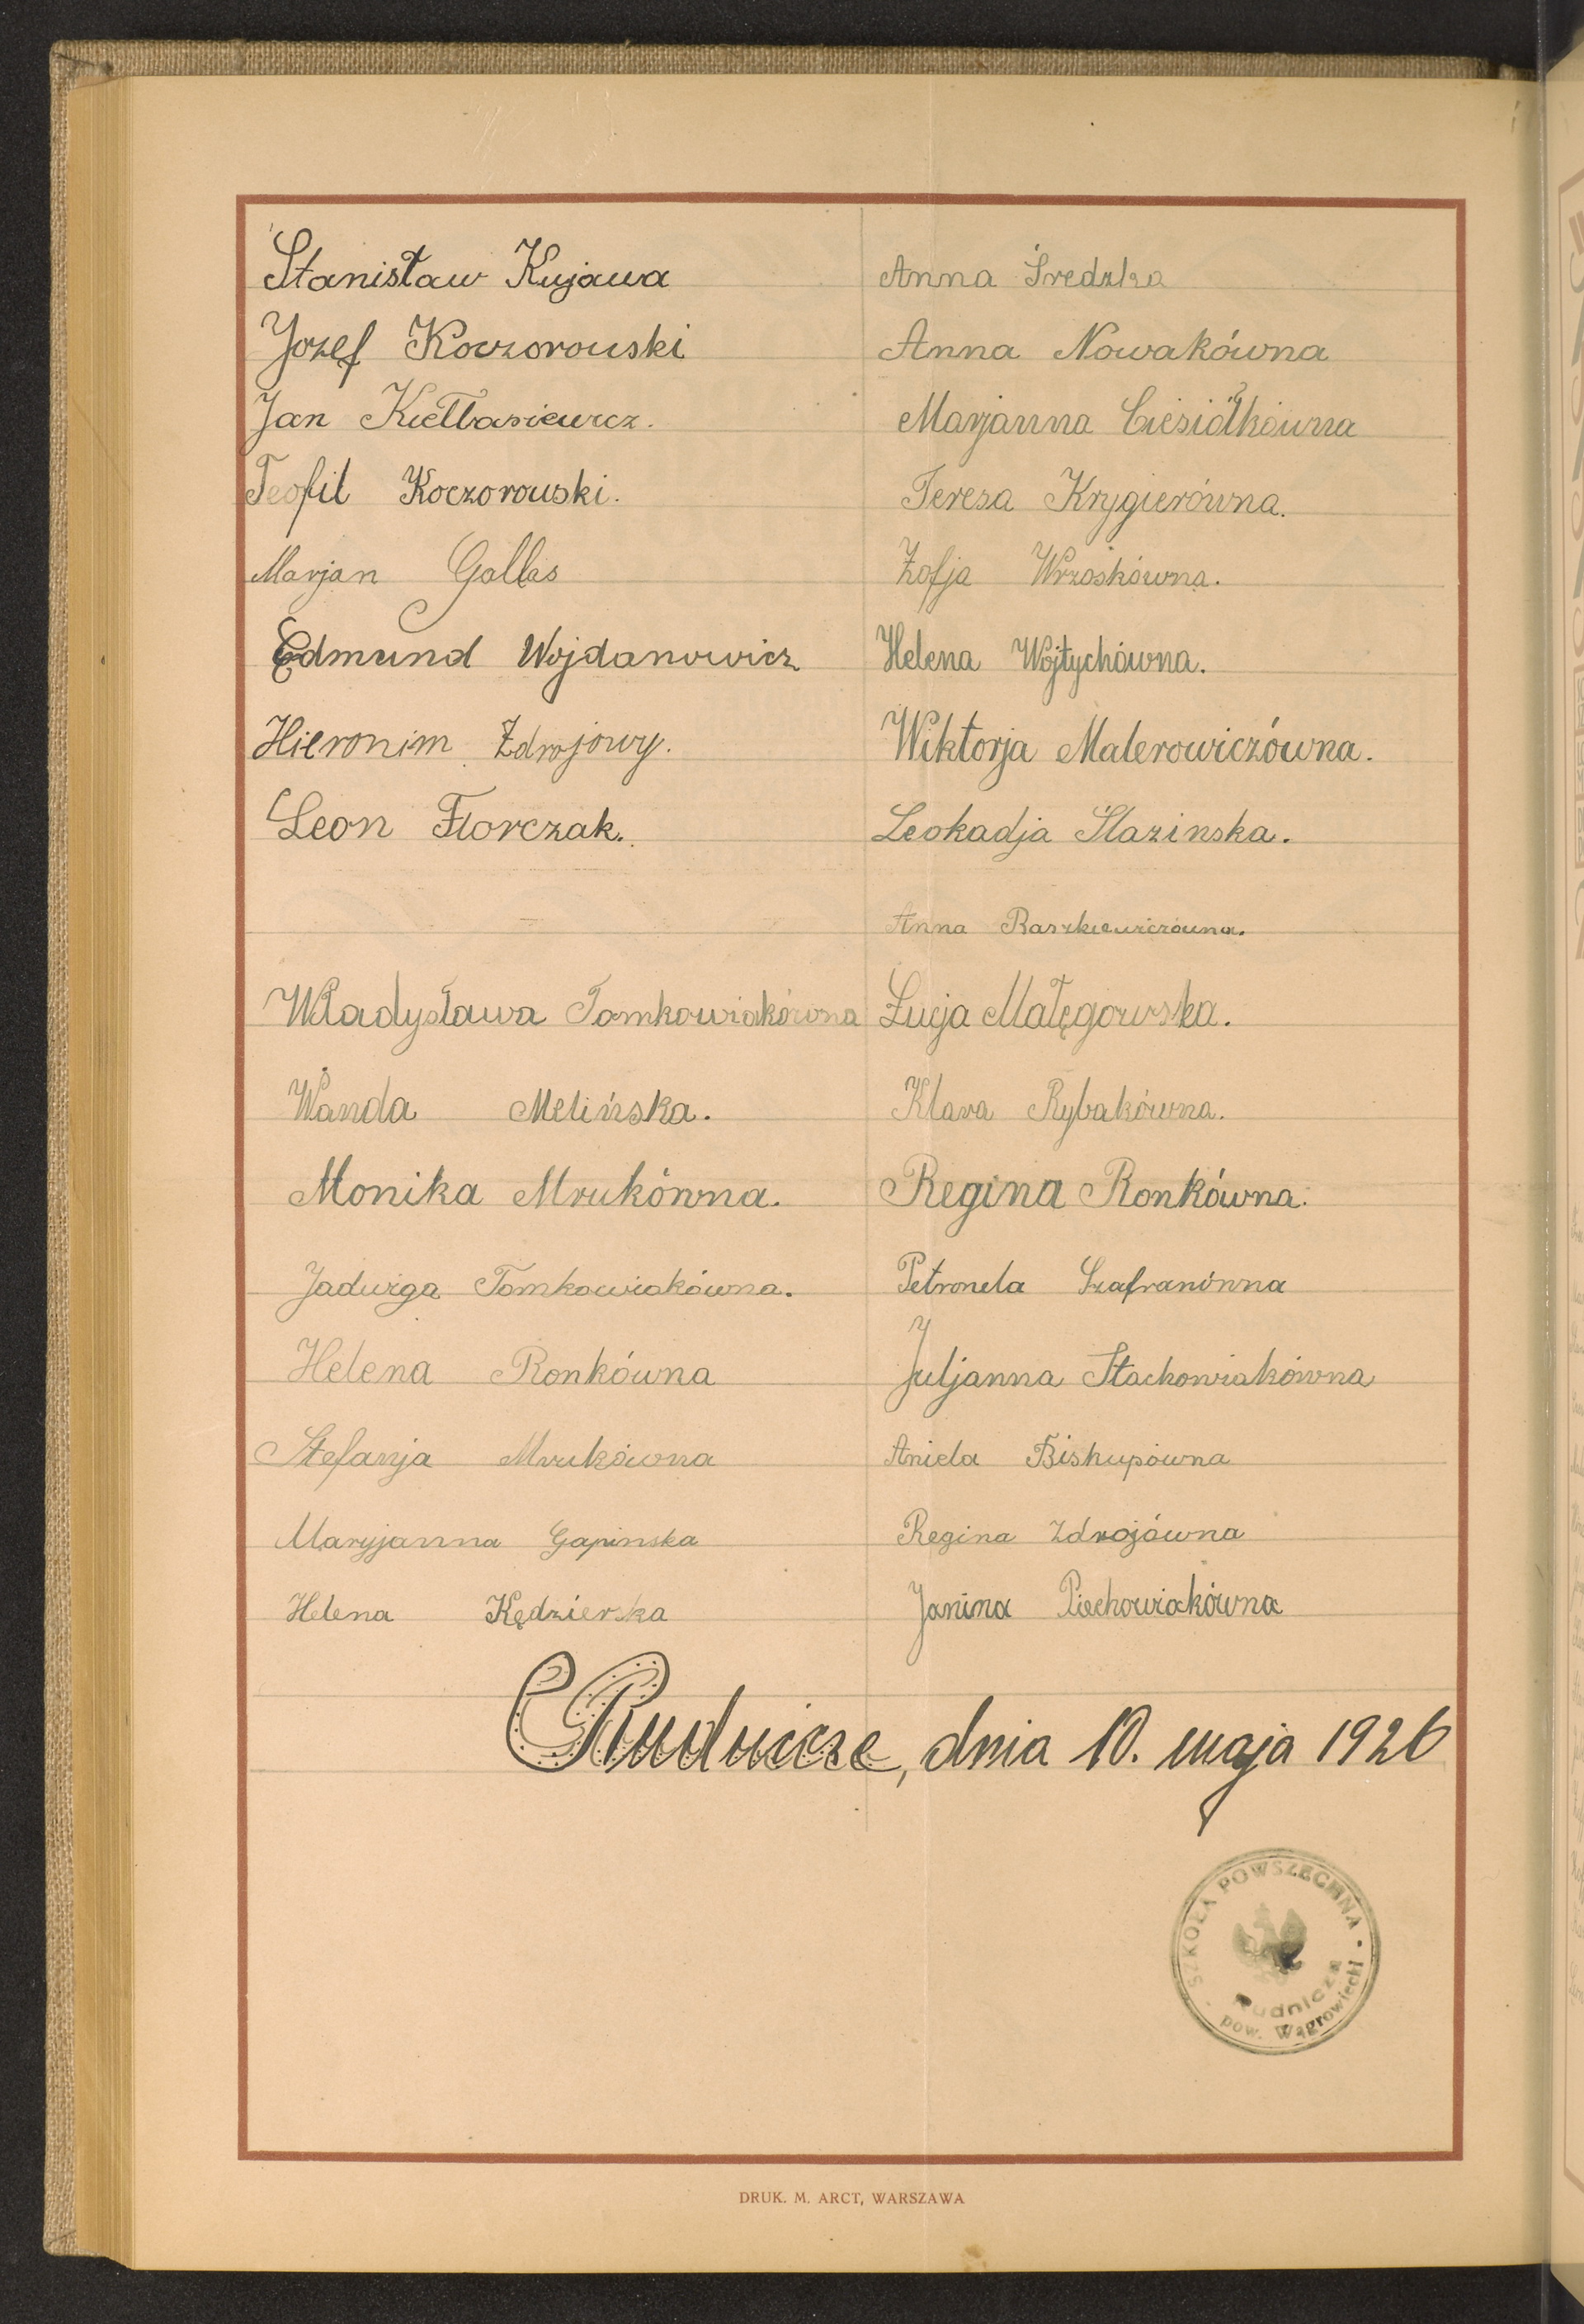 Stanisław Kujawa
Jozef Koczorowski
Jan Kiełbasiewicz.
Teofil Koczorowski.
Marjan Gallas
Edmund Wojdanowicz
Hieronim Zdrojowy.
Leon Florczak.
Władysława Tomkowiakówna
Wanda Melińska.
Monika Mrukówna.
Jadwiga Tomkowiakówna.
Helena Ronkówna
Stefanja Mrukówna
Maryjanna Gapinska
Helena Kędzierska
Anna Średzka
Anna Nowakówna
Marjanna Cieśiółkówna
Teresa Krygierówna.
Zofja Wrzoskówna.
Helena Wojtychówna.
Wiktorja Malerowiczówna.
Leokadja Ślazinska.
Anna Raszkiewiczówna.
Łucja Małęgowska.
Klara Rybakówna.
Regina Ronkówna.
Petronela Szafranówna
Juljanna Stachowiakówna
Aniela Biskupówna
Regina Zdrojówna
Janina Piechowiakówna
Rudnicze, dnia 10. maja 1926
SZKOŁA POWSZECHNA
Rudnicze
pow. Wągrowiecki
DRUK. M. ARCT, WARSZAWA